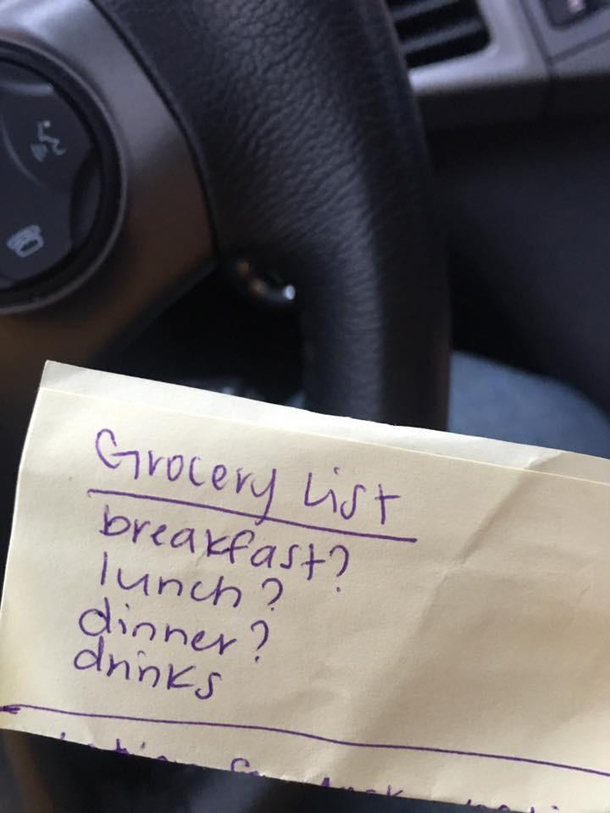 Grocery List
breakfast?
lunch?
dinner?
drinks